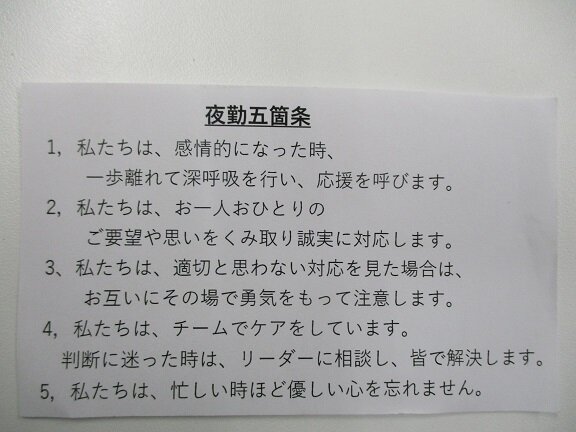 夜勤五箇条
1, 私たちは、感情的になった時、
一歩離れて深呼吸を行い、応援を呼びます。
2, 私たちは、お一人おひとりの
ご要望や思いをくみ取り誠実に対応します。
3、私たちは、適切と思わない対応を見た場合は、
お互いにその場で勇気をもって注意します。
4, 私たちは、チームでケアをしています。
判断に迷った時は、リーダーに相談し、皆で解決します。
5, 私たちは、忙しい時ほど優しい心を忘れません。